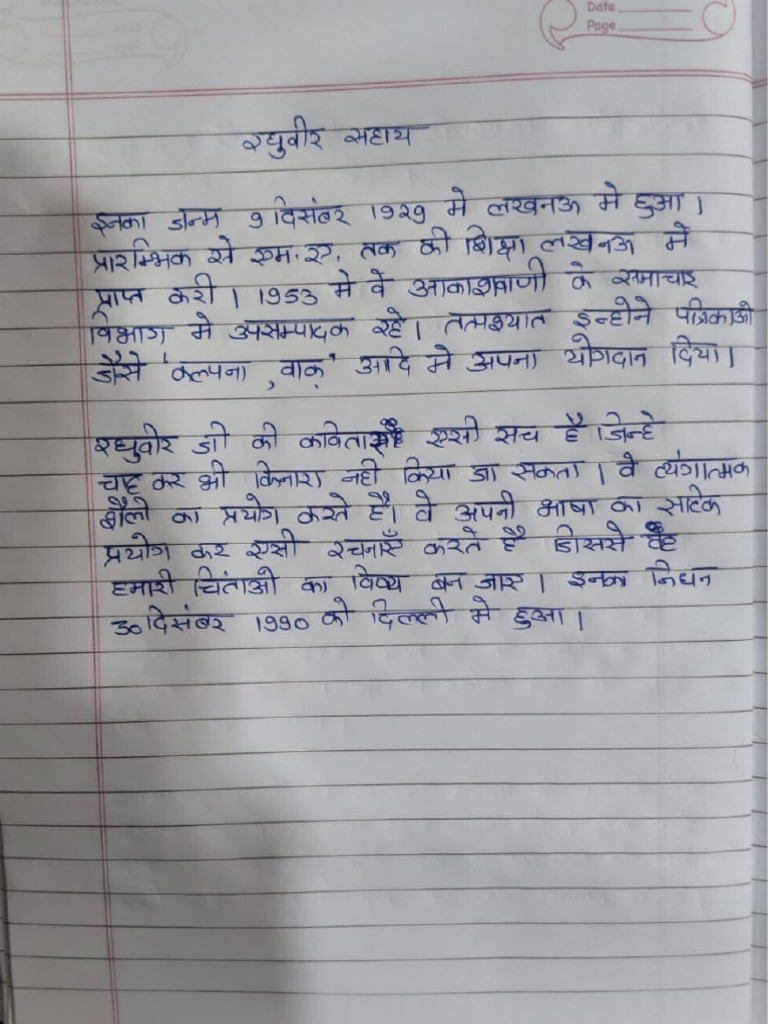 Date
Page
रघुवीर सहाय
इनका जन्म 9 दिसंबर 1929 मे लखनऊ मे हुआ।
प्रारम्भिक से एम.ए. तक की शिक्षा लखनऊ मे
प्राप्त करी। 1953 मे वे आकाशवाणी के समाचार
विभाग मे उपसम्पादक रहे। तत्पश्यात इन्होने पत्रिकाओ
जैसे 'कल्पना, वाक्' आदि मे अपना योगदान दिया।
रघुवीर जी की कविताएँ एसी सच है जिन्हे
चाह कर भी किनारा नही किया जा सकता। वे व्यंगात्मक
शैली का प्रयोग करते है। वे अपनी भाषा का सटिक
प्रयोग कर एसी रचनाएँ करते है जिससे वह
हमारी चिंताओ का विषय बन जाए। इनका निधन
30 दिसंबर 1990 को दिल्ली मे हुआ।